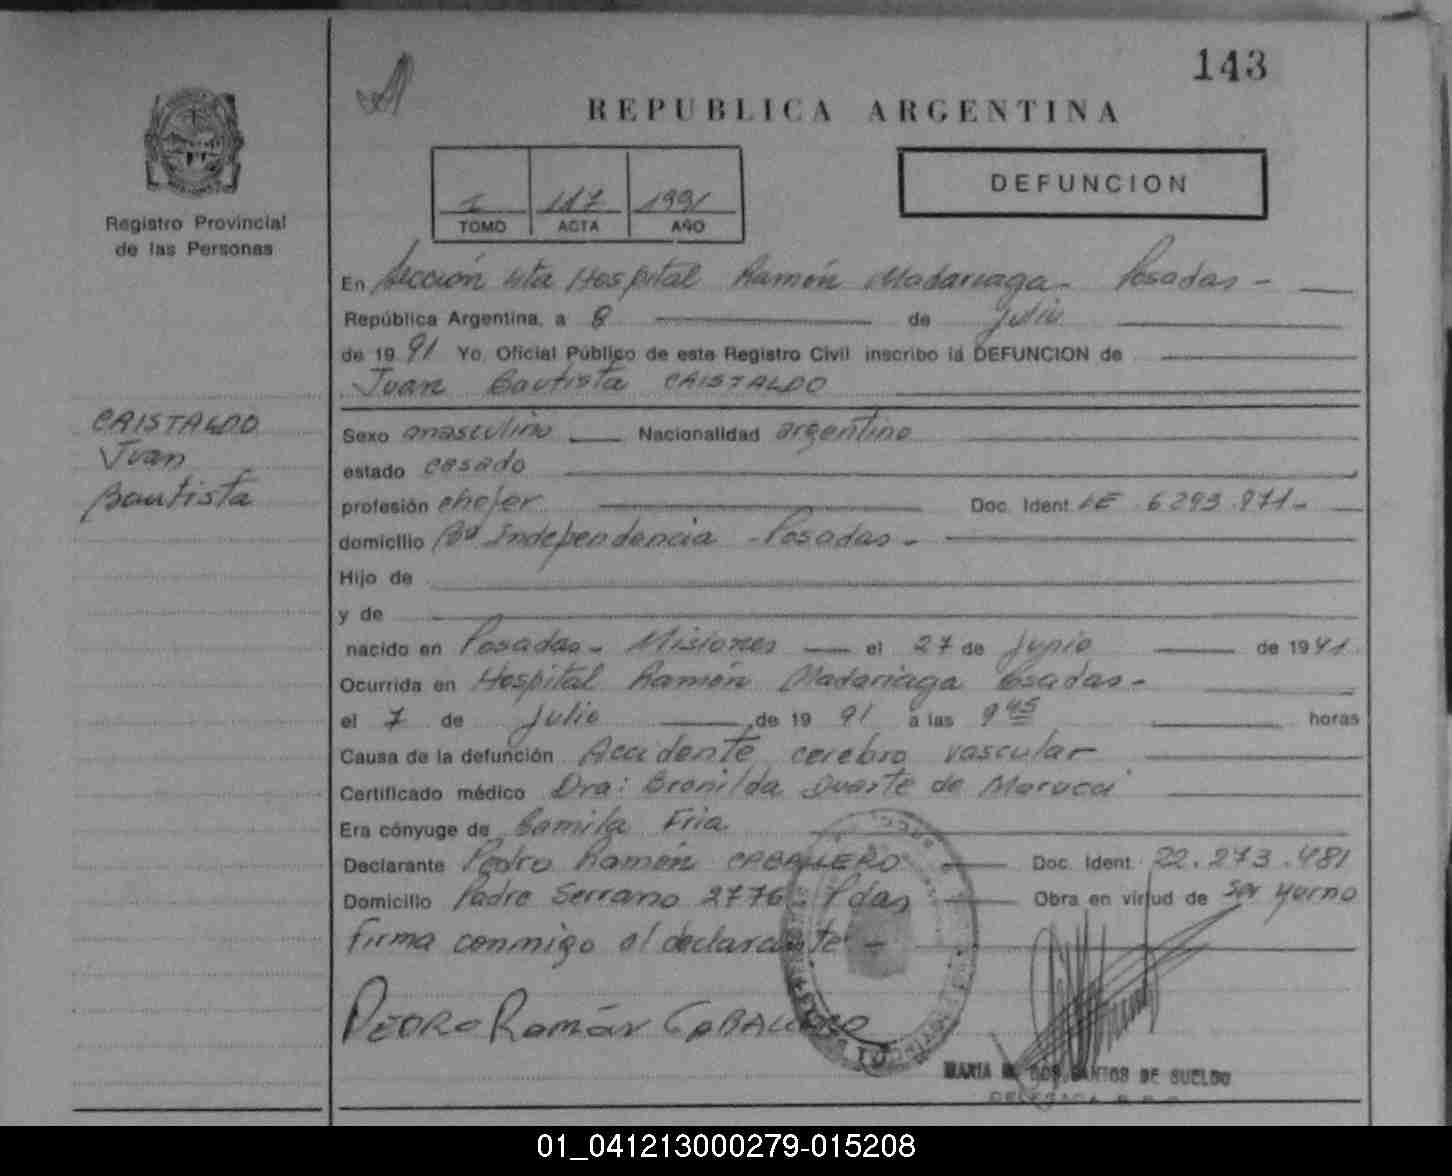 143
REPUBLICA ARGENTINA
Registro Provincial
de las Personas
1 117 1991
TOMO ACTA AÑO
DEFUNCION
En Sección 4ta Hospital Ramón Madariaga - Posadas -
República Argentina, a 8 de Julio
de 19 91 Yo, Oficial Público de este Registro Civil inscribo la DEFUNCION de
Juan Bautista CRISTALDO
CRISTALDO
Juan
Bautista
Sexo masculino Nacionalidad argentino
estado casado
profesión chofer Doc. Ident. LE 6.293.971-
domicilio Bº Independencia - Posadas -
Hijo de
y de
nacido en Posadas - Misiones el 27 de Junio de 1941.
Ocurrida en Hospital Ramón Madariaga Posadas -
el 7 de Julio de 19 91 a las 9 45 horas
Causa de la defunción Accidente cerebro vascular
Certificado médico Dra: Bronilda Duarte de
Era cónyuge de Camila Fria
Declarante Pedro Ramón CABALLERO Doc. Ident. 22.273.481
Domicilio Padre Serrano 2776 - Pdas Obra en virtud de ser yerno
firma conmigo el declarante -
PEDRO Ramón CABALLERO
MARIA DOS SANTOS DE SUELDO
DELEGADA
01_041213000279-015208